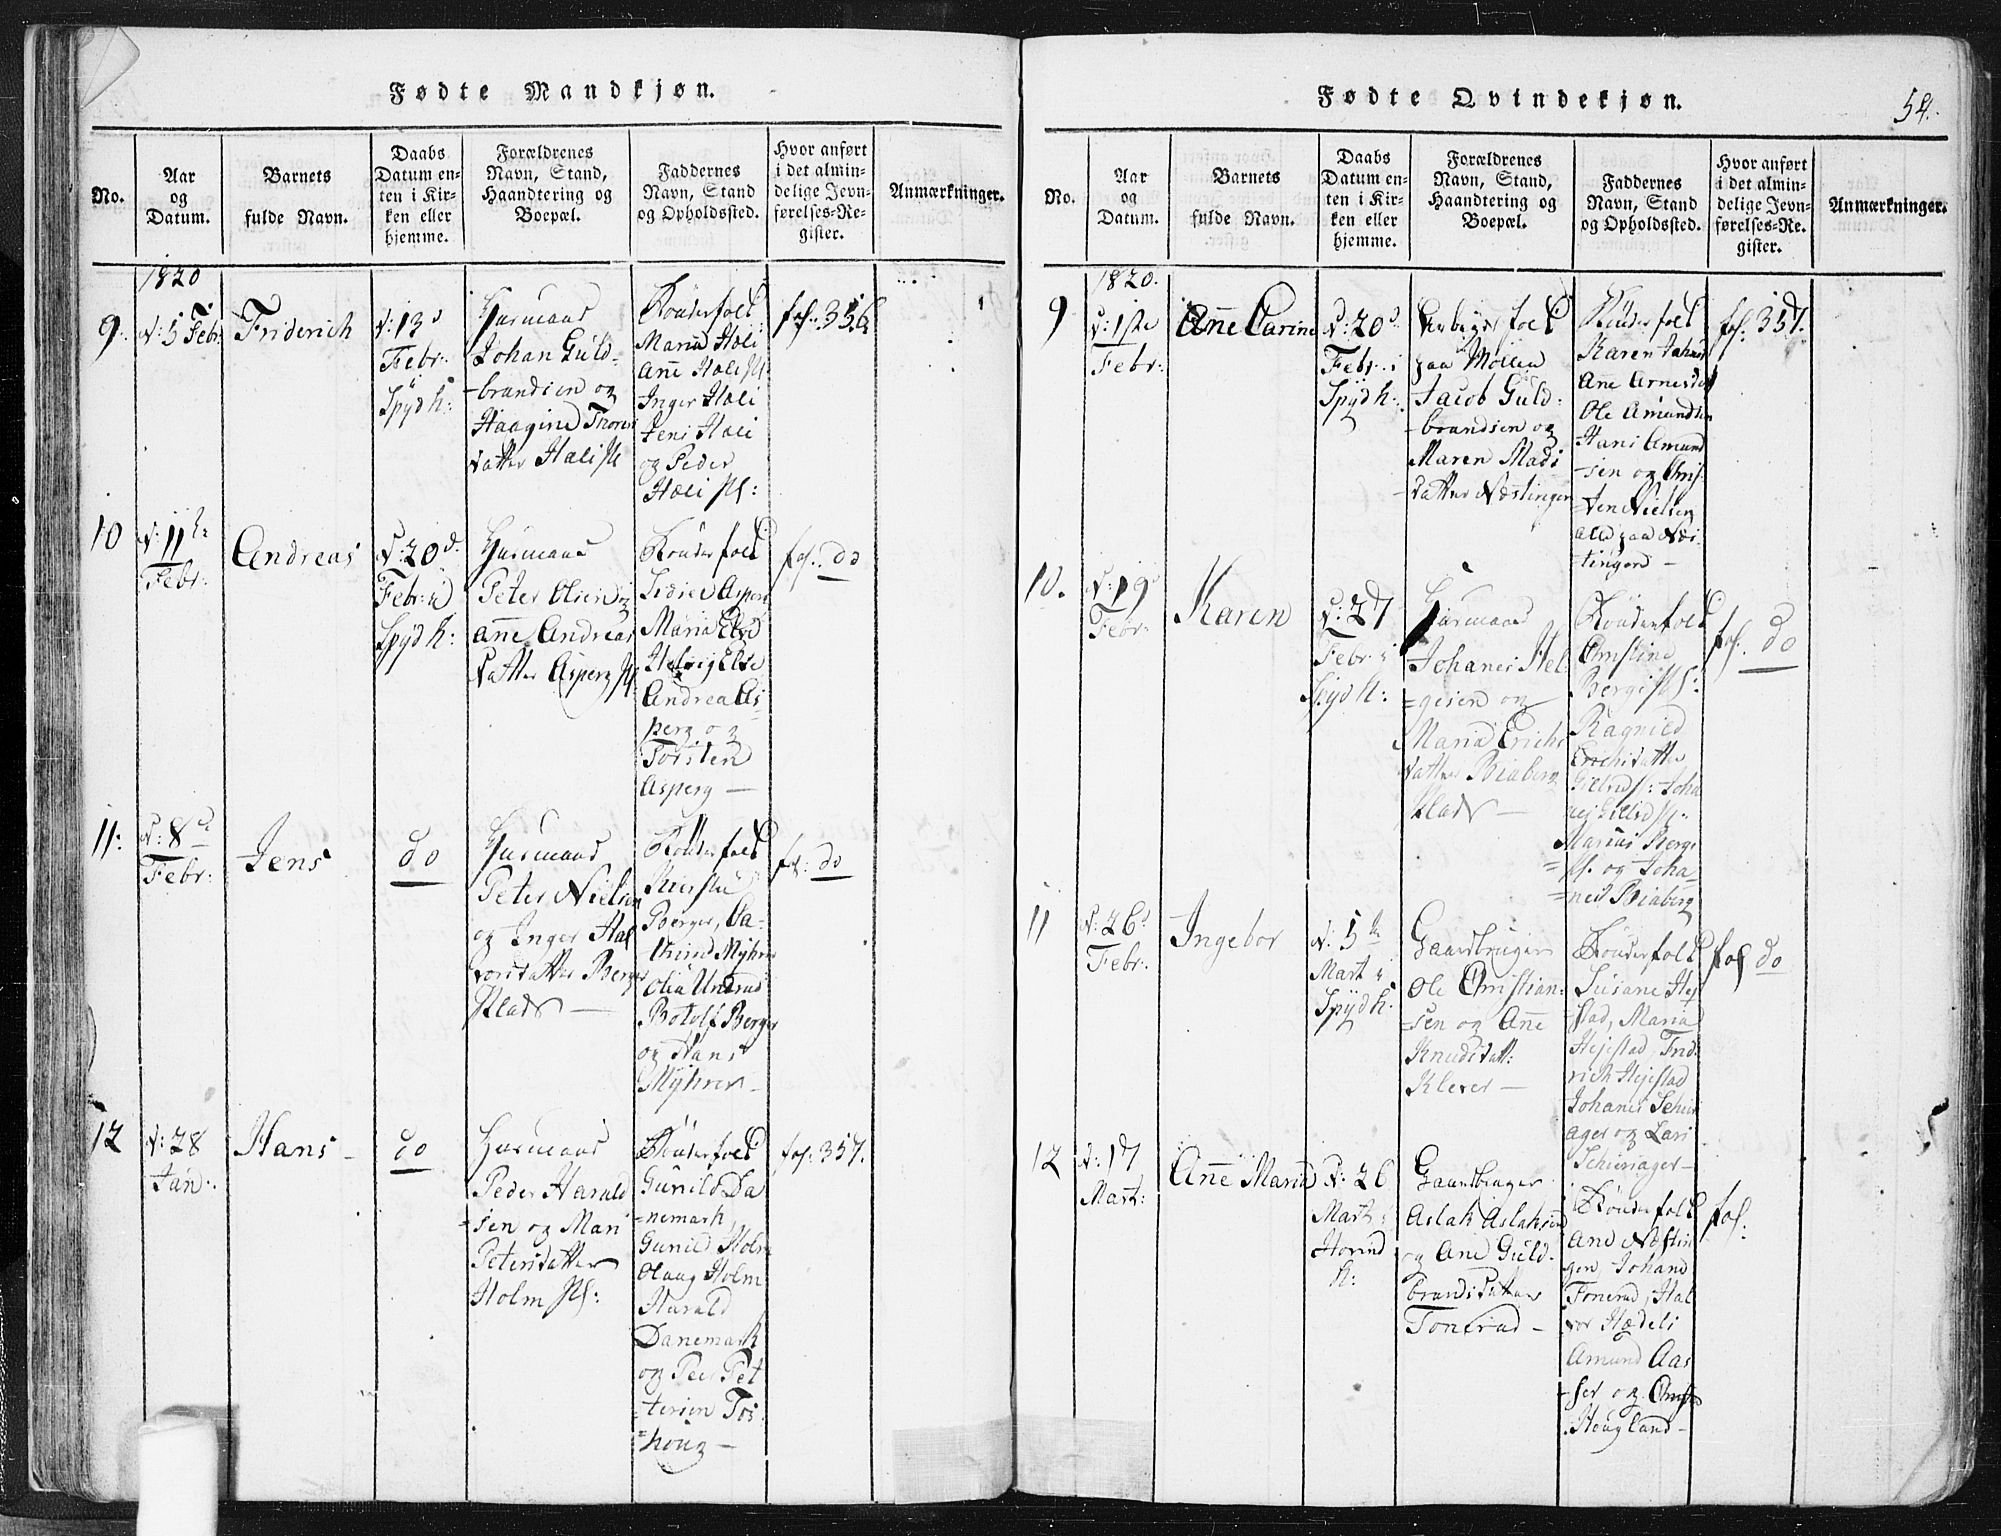 Fødte Mandkjøn.
No.
Aar
og
Datum.
Barnets
fulde Navn.
Daabs
Datum en-
ten i Kir-
ken eller
hjemme.
Forældrenes
Navn, Stand,
Haandtering og
Boepæl.
Faddernes
Navn, Stand
og Opholdssted.
Hvor anført
i det almin-
delige Jevn-
førelses-Re-
gister.
Anmærkninger.
1820
9.
d: 5 Febr:
Friderich
d: 13d
Febr:
Spydk:
Huusmand
Johan Guld-
-brandsen og
Haagine Thores
datter Hæli Pl
Bønderfolk
Maria Hæli
Anne Hæli Pl
Inger Hæli
Jens Hæli
og Peder
Hæli Pl:
fol. 356
10
d: 11te
Febr:
Andreas
d: 20d.
Febr: i
Spydk:
Huusmand
Peter Olsen og
Anne Andreas
datter Asperg Pl
Bønderfolk
Asperg
Maria
Andrea As-
perg og
Torsten
Asperg —
fol. do
11:
d: 8de
Febr:
Jens
do
Huusmand
Peter Nielsen
og Inger Hal
vorsdatter Berger
Plads —
Bønderfolk
Kirsti
Berger, Ca-
thrine Myhrer
Olia Undrud
Botolf Berger
og Hans
Myhrer —
fol: do
12
d: 28
Jan:
Hans —
do
Huusmand
Peder Harald
=sen og Mari
Petersdatter
Holm Pl:
Bønderfolk
Gunild Da
=nemark,
Gunild Holm
Olaug Holm
Harald
Danemark
og Peer Pet
=tersen Tos
=houg —
fol: 357.
Fødte Qvindekjøn.
54.
No.
Aar
og
Datum.
Barnets
fulde Navn.
Daabs
Datum en-
ten i Kir-
ken eller
hjemme.
Forældrenes
Navn, Stand,
Haandtering og
Boepæl.
Faddernes
Navn, Stand
og Opholdssted.
Hvor anført
i det almin-
delige Jevn-
førelses-Re-
gister.
Anmærkninger.
1820.
9
d: 1ste
Febr:
Anne Carine
d: 20d.
Febr: i
Spydk:
paa Moeen
Jacob Guld-
-brandsen og
Maren Mads
datter Næstingen
Bønderfolk
Karen
Ane Arnesdr
Ole Amundsen
Hans Amund
-sen og Chris-
ten Nielsen
alle paa Næs-
tingen —
fol. 357.
10.
d: 19
Febr:
Karen
d: 27
Febr: i
Spydk:
Huusmand
Johanes Hel
=gesen og
Maria Erichs
datter Biaberg
Plads —
Bønderfolk
Christine
Bergs Pl:
Ragnild
Erichsdatter
Pl: Joha
nes Pl.
Marius Bergs
=Pl. og Joha
=nes Biaberg
fol. do
11
d: 26d
Febr:
Ingebor
d: 5te
Mart i
Spydk:
Gaardbruger
Ole Christian-
sen og Anne
Knudsdatt:
Klever —
Bønderfolk
Susane Hej
stad, Maria
Hejestad, Frid-
rich Hejestad
Johanes
ager og Lars
—
fol do
12
d: 17
Mart:
Anne Maria
d: 26
Mart i
Hovind
K:
Gaardbruger
Aslak Aslaksen
og Ane Guld-
brandsdatter
Tonerud —
Bønderfolk
Ane Næstin
gen Johane
Tonerud, Hal
vor Hædeli
Amund Aas
og
Hougland —
fol.